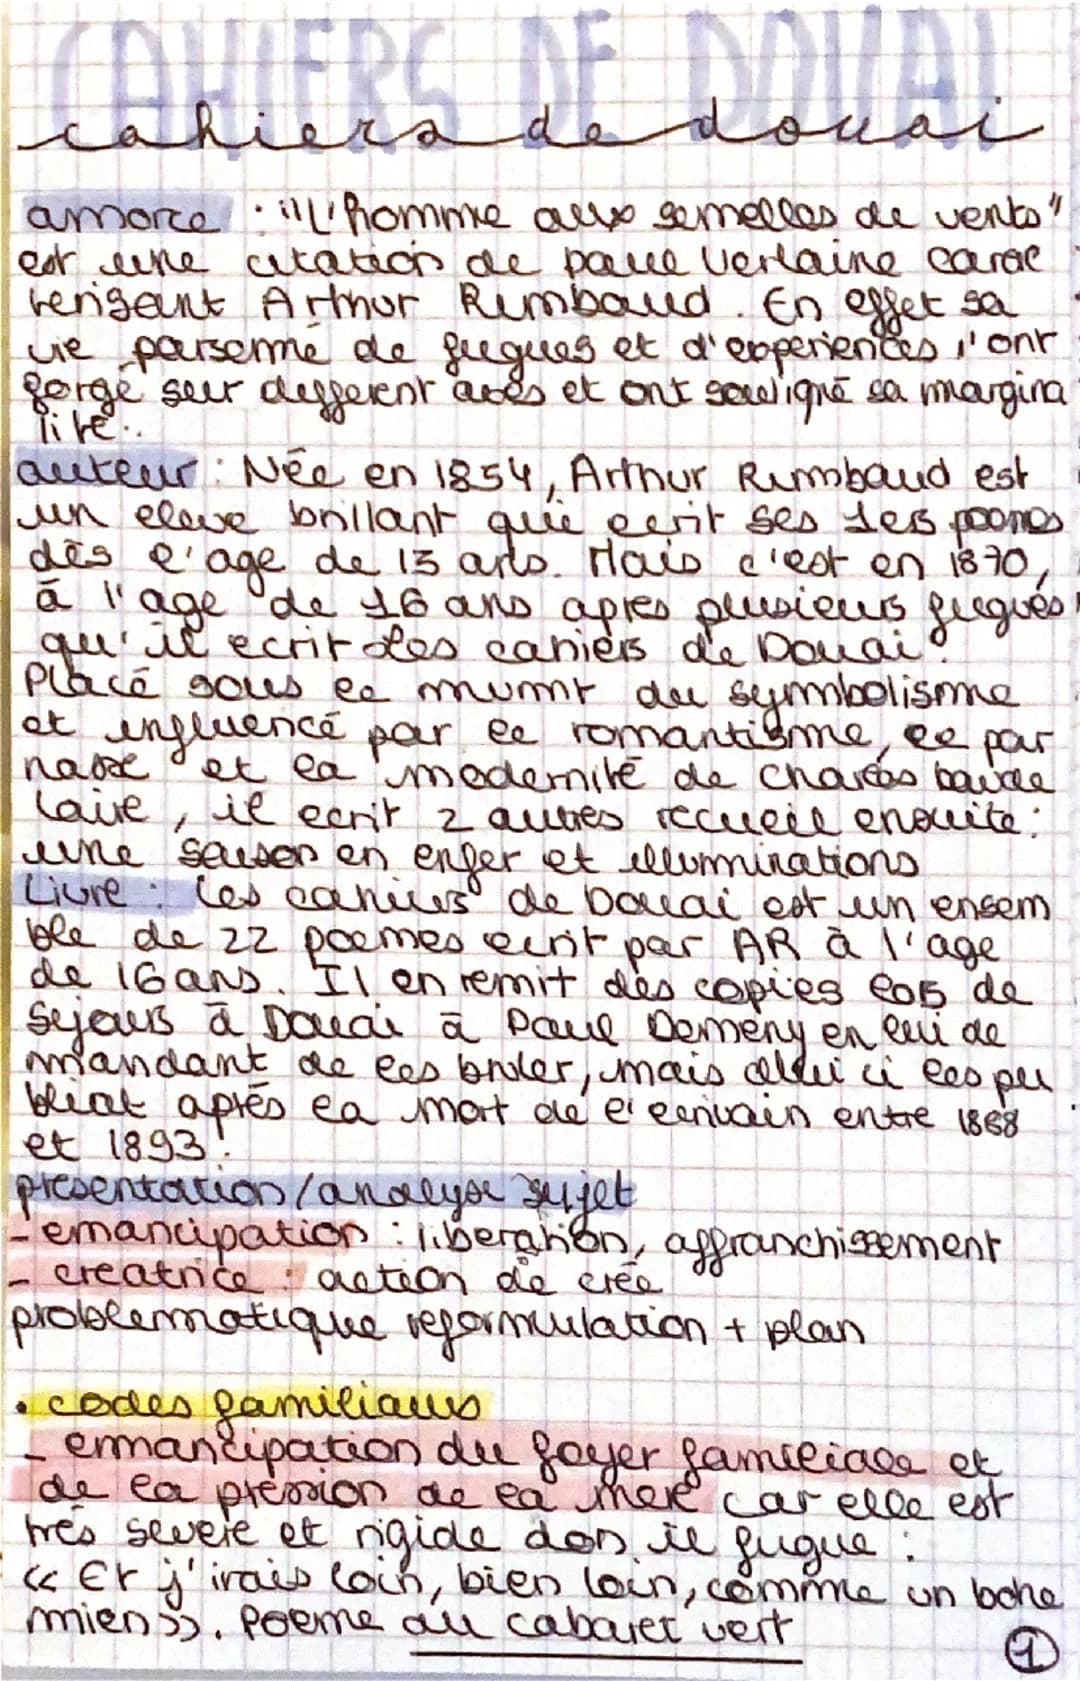 CAHIERS DE DOUAI
cahiers de douai
amorce : "L'homme aux semelles de vents"
est une citation de paul Verlaine carac
terisant Arthur Rimbaud. En effet sa
vie parsemé de fugues et d'experiences l'ont
forgé sur different axes et ont souligné sa margina
lité.
auteur : Née en 1854, Arthur Rimbaud est
un eleve brillant qui ecrit ses 1ers poemes
dès l'age de 13 ans. Mais c'est en 1870,
à l'age de 16 ans apres plusieurs fugues
qu'il ecrit les cahiers de Douai.
Placé sous le mvmt du symbolisme
et influencé par le romantisme, le par
nasse et la modernité de Charles baude
laire, il ecrit 2 autres recueil ensuite :
une saison en enfer et illuminations
Livre : les cahiers de Douai est un ensem
ble de 22 poemes ecrit par AR à l'age
de 16 ans. Il en remit des copies lors de
sejours à Douai à Paul Demeny en lui de
mandant de les bruler, mais celui ci les pu
bliat après la mort de l'ecrivain entre 1868
et 1893.
presentation/analyse sujet
- emancipation : liberation, affranchissement
- creatrice : action de crée
problematique reformulation + plan
• codes familiaux
- emancipation du foyer familiale et
de la pression de la mere car elle est
très severe et rigide don il fugue :
« Et j'irais loin, bien loin, comme un bohe
mien ». Poeme au cabaret vert
1